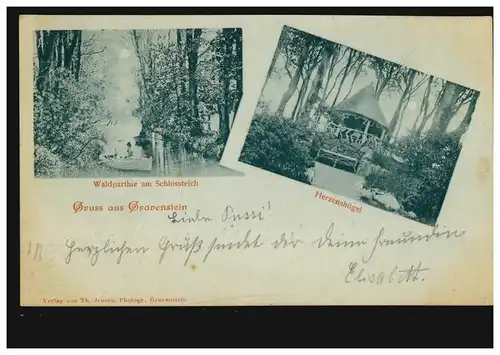 Waldparthie am Schlossteich
Herzenshügel
Gruss aus Gravenstein
Liebe Pussi!
Herzlichen Gruß sendet dir deine Freundin
Elisabeth.
Verlag von Th. Jensen, Photogr., Gravenstein